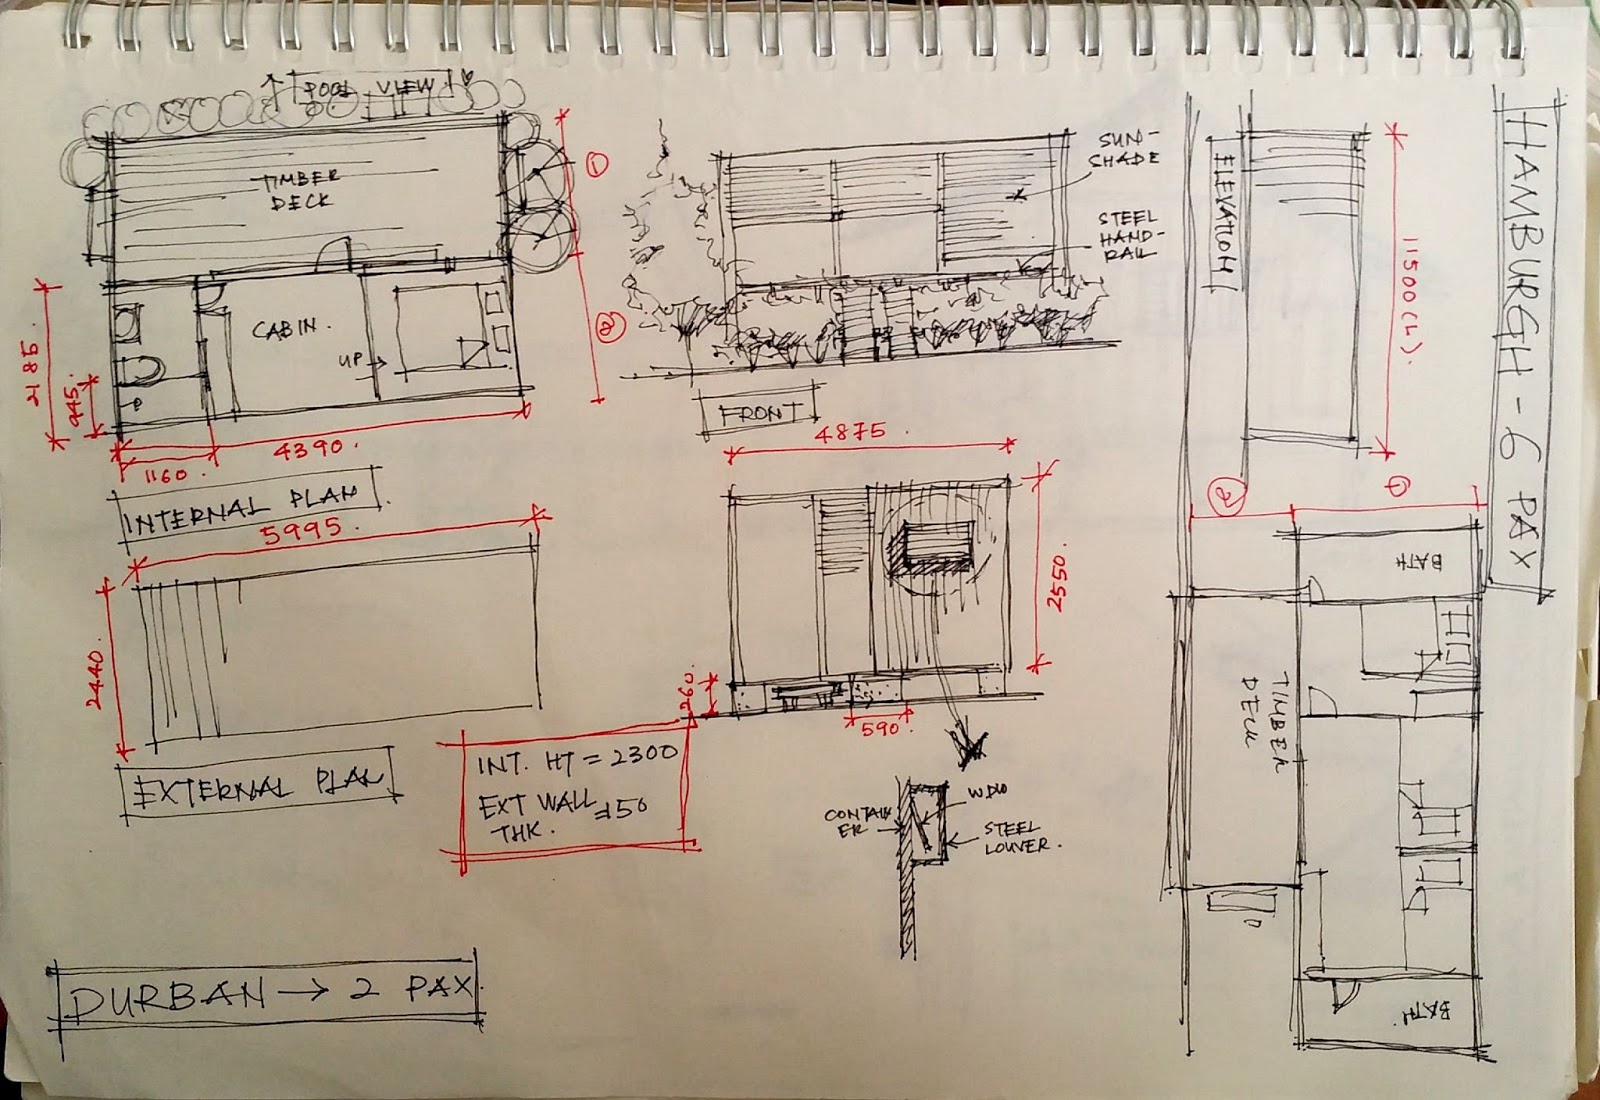 ↑ POOL VIEW!
TIMBER
DECK
①
②
CABIN.
UP →
2185.
945.
1160.
4390.
INTERNAL PLAN
5995
2440
EXTERNAL PLAN
SUN-
SHADE
STEEL
HAND-
RAIL
FRONT
4875
2550.
260
590
INT. HT = 2300
EXT WALL
THK.
CONTAIN
ER
WDW
STEEL
LOUVER.
DURBAN → 2 PAX
HAMBURGH - 6 PAX
ELEVATION
11500(L).
②
①
BATH
TIMBER
DECK
BATH.